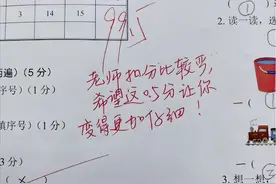 99.5
2. 读一读,选
3 14 15
遍)(5 分)
老师扣分比较严,
序号)(1 分)
希望这0.5分让你
变得更加仔细!
填序号)(1 分)
3 分)
3. 想一想,